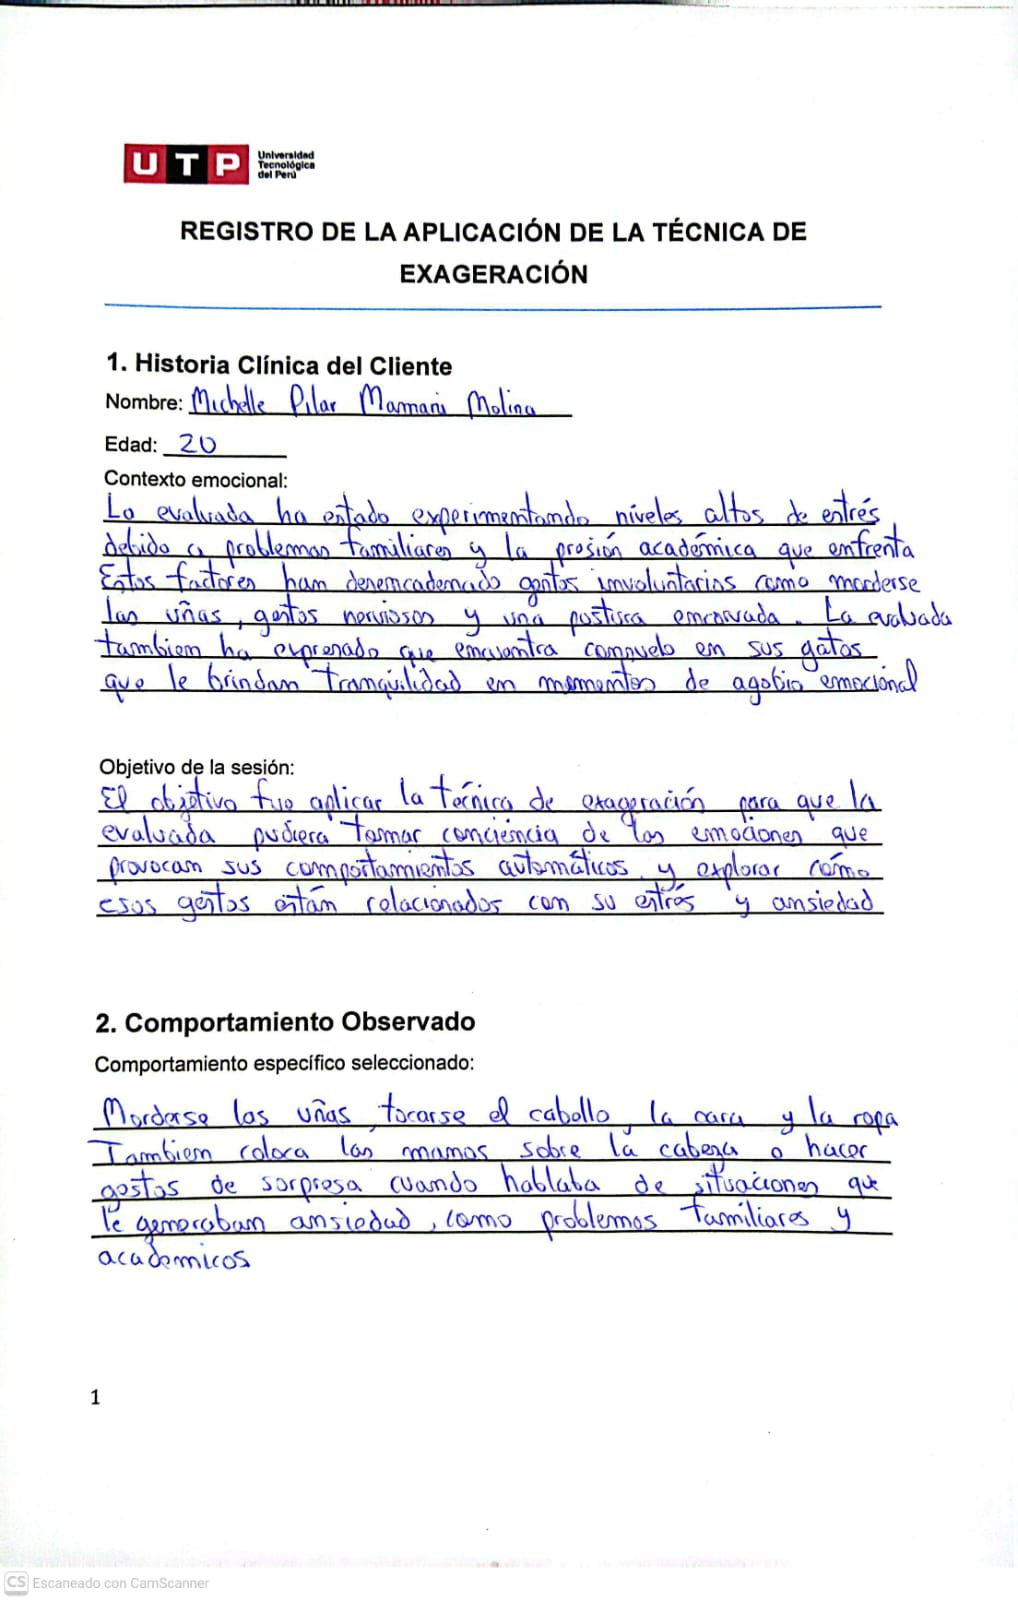 UTP Universidad
Tecnológica
del Perú
REGISTRO DE LA APLICACIÓN DE LA TÉCNICA DE
EXAGERACIÓN
1. Historia Clínica del Cliente
Nombre: Michelle Pilar Mamani Molina
Edad: 20
Contexto emocional:
La evaluada ha estado experimentando níveles altos de estrés
debido a problemas familiares y la presión académica que enfrenta
Estos factores han desencadenado gestos involuntarios como morderse
las uñas, gestos nerviosos y una postura encorvada. La evaluada
tambien ha expresado que encuentra consuelo en sus gatos
que le brindan tranquilidad en momentos de agobio emocional
Objetivo de la sesión:
El objetivo fue aplicar la técnica de exageración para que la
evaluada pudiera tomar conciencia de las emociones que
provocan sus comportamientos automáticos, y explorar cómo
esos gestos están relacionados con su estrés y ansiedad
2. Comportamiento Observado
Comportamiento específico seleccionado:
Morderse las uñas, tocarse el cabello, la cara y la ropa
Tambien coloca las manos sobre la cabeza o hacer
gestos de sorpresa cuando hablaba de situaciones que
le generaban ansiedad, como problemas familiares y
academicos
1
CS Escaneado con CamScanner